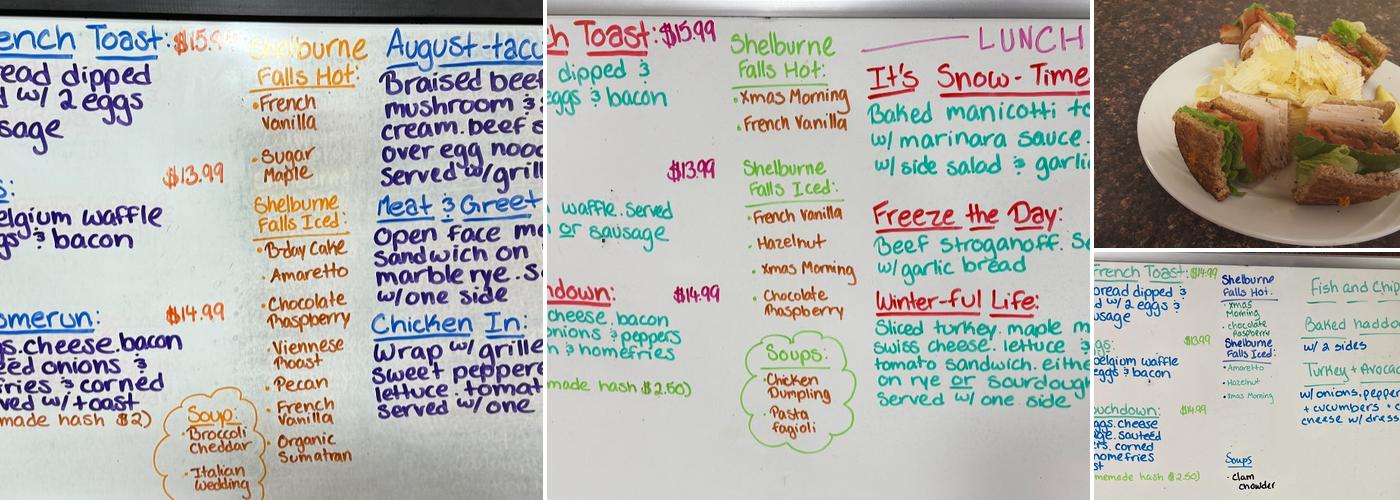 ench Toast: $15.99
ead dipped
d w/ 2 eggs
sage
$13.99
s:
elgium waffle
gs & bacon
omerun: $14.99
gs. cheese. bacon
eed onions &
fries & corned
ved w/ toast
made hash $2)
Shelburne
Falls Hot:
• French
Vanilla
• Sugar
Maple
Shelburne
Falls Iced:
• B-day Cake
• Amaretto
• Chocolate
Raspberry
• Viennese
Roast
• Pecan
• French
Vanilla
• Organic
Sumatran
Soup:
• Broccoli
Cheddar
• Italian
Wedding
August-tacu
Braised beef
mushroom &
cream. beef s
over egg nood
Served w/ grill
Meat & Greet
Open face me
Sandwich on
marble rye. S
w/ one side
Chicken In:
Wrap w/ grille
sweet peppers
lettuce. tomat
served w/ one
ch Toast: $15.99
dipped &
eggs & bacon
$13.99
waffle. served
or sausage
hdown: $14.99
cheese. bacon
onions & peppers
n & homefries
made hash $2.50)
Shelburne
Falls Hot:
• Xmas Morning
• French Vanilla
Shelburne
Falls Iced:
• French Vanilla
• Hazelnut
• Xmas Morning
• Chocolate
Raspberry
Soups:
• Chicken
Dumpling
• Pasta
fagioli
LUNCH
It's Snow-Time
Baked manicotti to
w/ marinara sauce.
w/ side salad & garlic
Freeze the Day:
Beef Stroganoff. Se
w/ garlic bread
Winter-ful Life:
Sliced turkey. maple m
swiss cheese. lettuce &
tomato sandwich. eithe
on rye or sourdough
Served w/ one side
French Toast: $14.99
bread dipped &
d w/ 2 eggs &
usage
gs: $13.99
belgium waffle
eggs & bacon
ouchdown: $14.99
ggs. cheese
age. sauteed
ers. corned
homefries
st
memade hash $2.50)
Shelburne
Falls Hot:
• Xmas
Morning
• chocolate
Raspberry
Shelburne
Falls Iced:
• Amaretto
• Hazelnut
• Xmas Morning
Soups
• Clam
Chowder
Fish and Chip
Baked haddo
w/ 2 sides
Turkey + Avoca
w/ onions. pepper
+ cucumbers + c
cheese w/ dress